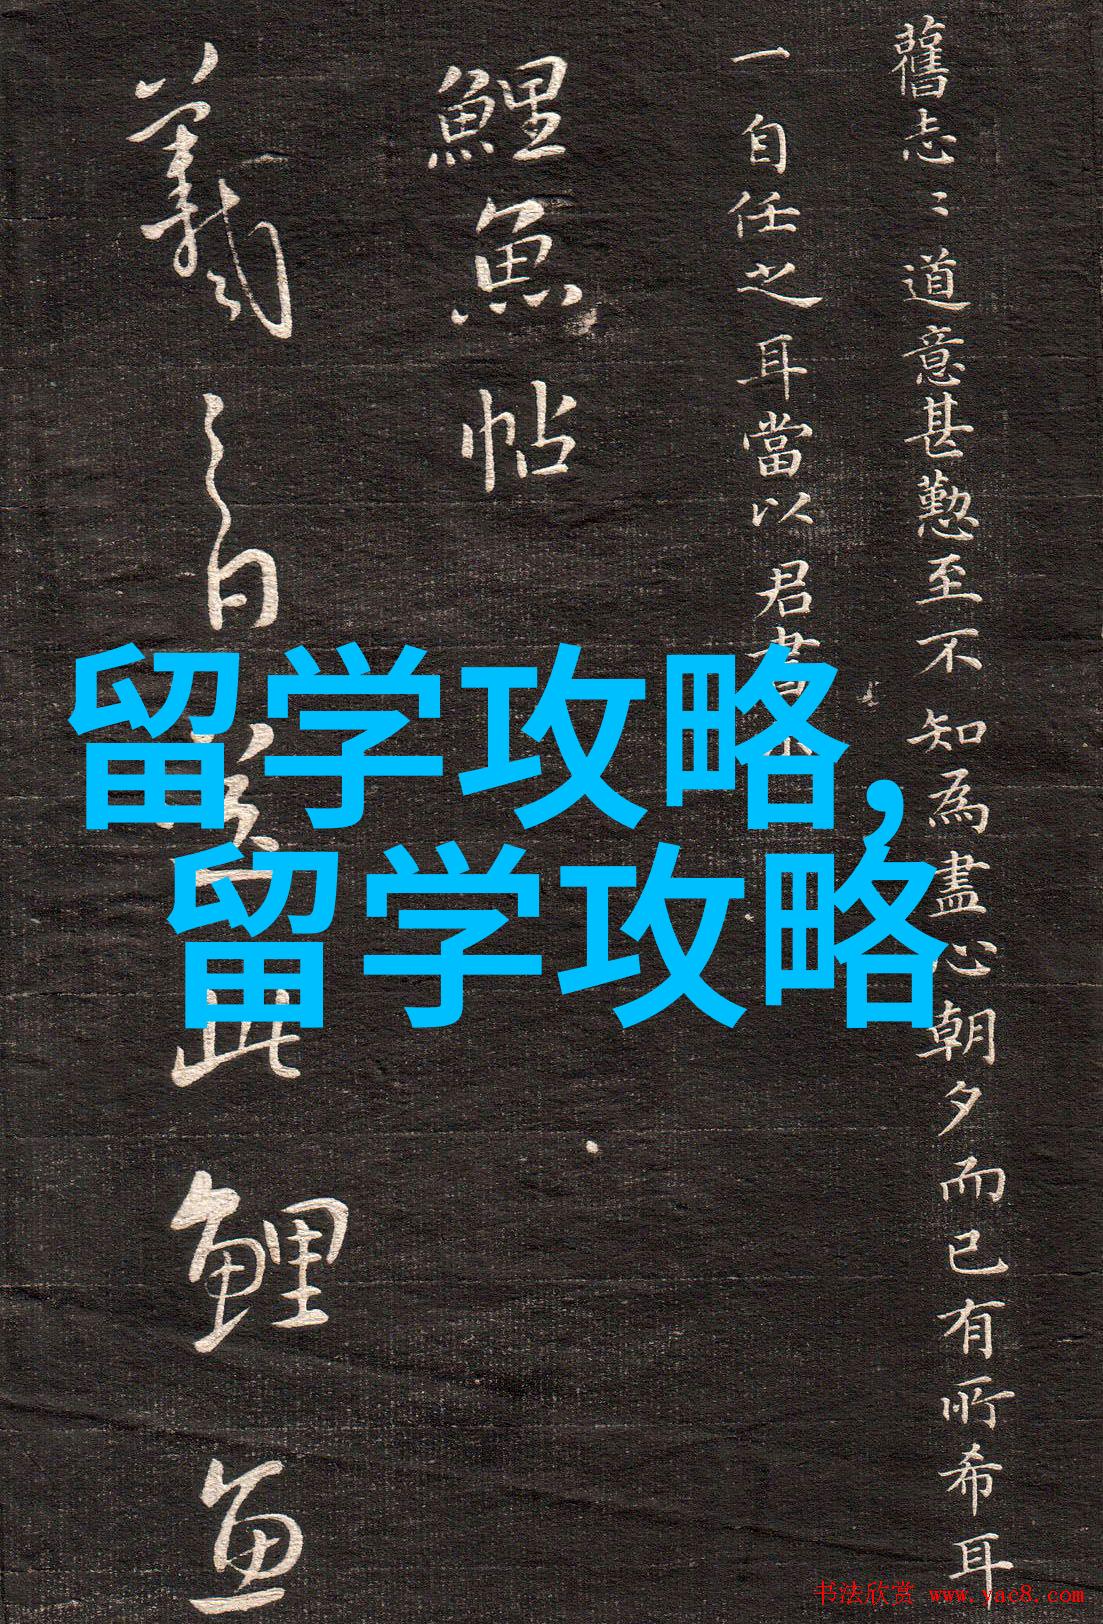 舊志〻道意甚懃至不知為盡心朝夕而已有所希耳
一自任之耳當以君書
鯉魚帖
羲之白 此鯉魚
留学攻略,
留学攻略
书法欣赏 www.yac8.com